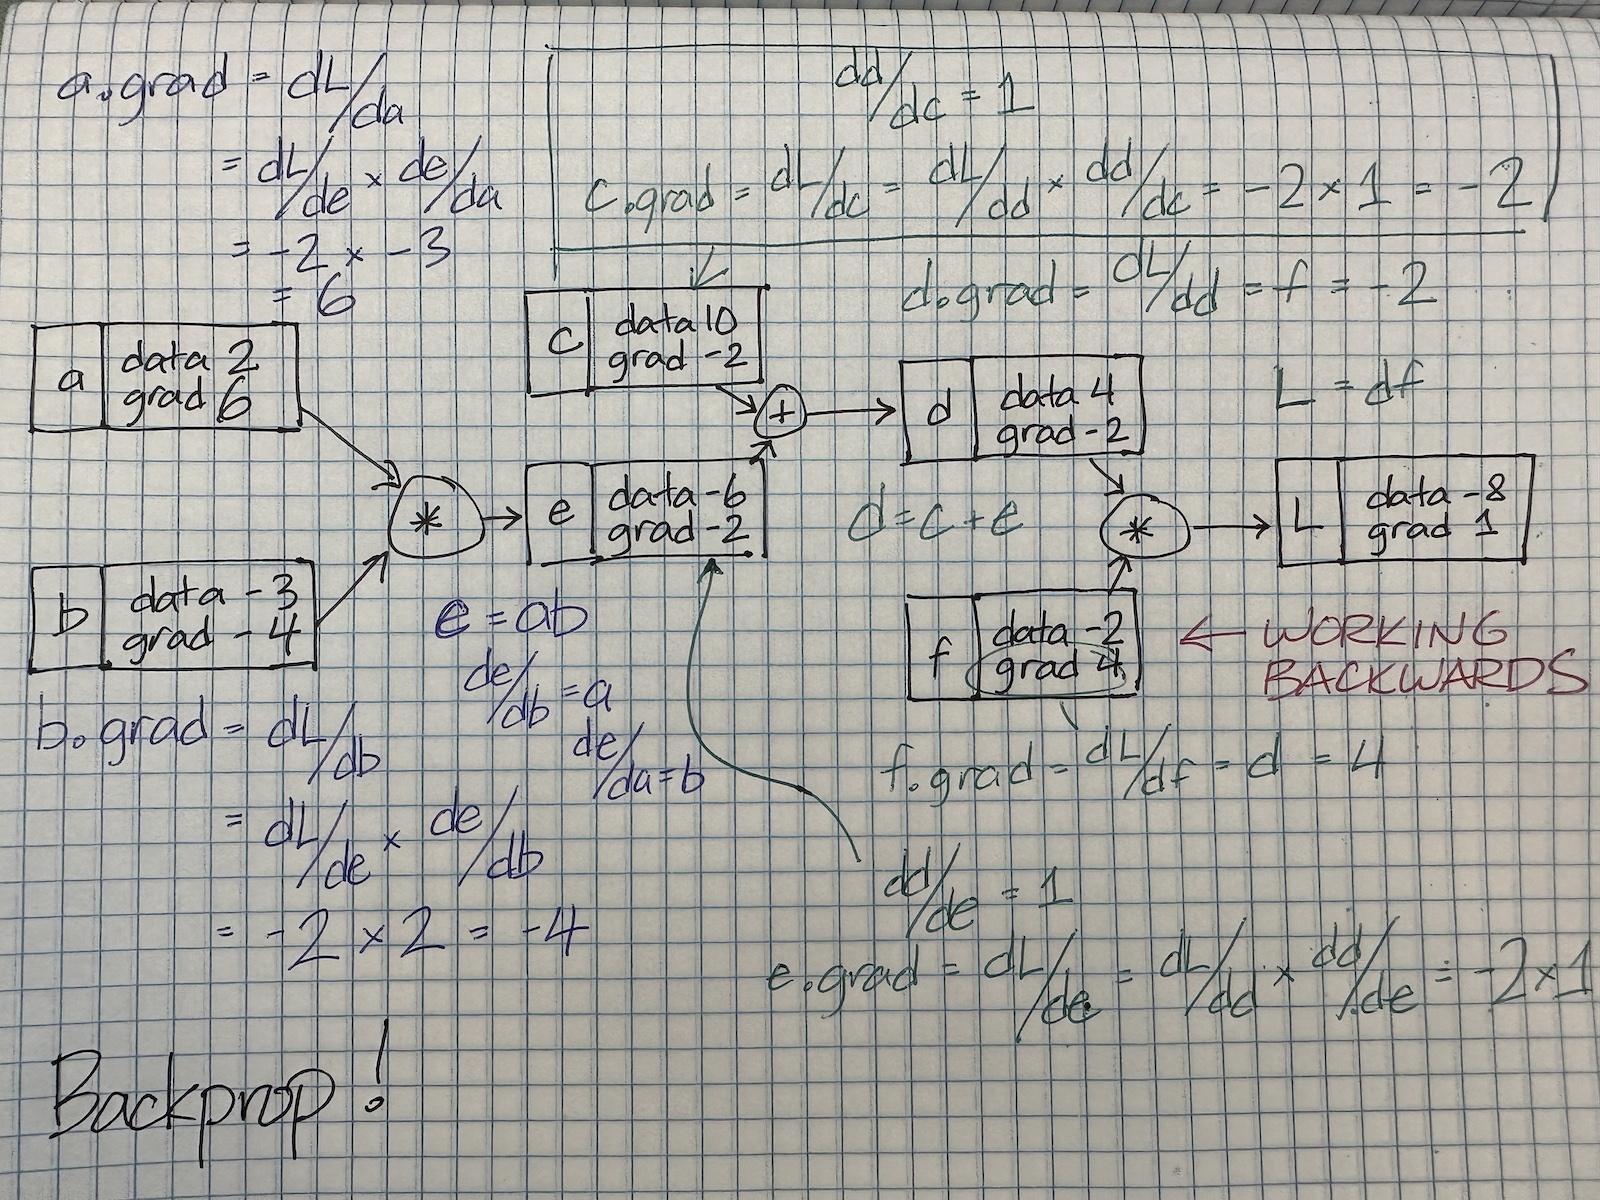 a.grad = dL/da
= dL/de × de/da
= -2 × -3
= 6
dd/dc = 1
c.grad = dL/dc = dL/dd × dd/dc = -2 × 1 = -2
d.grad = dL/dd = f = -2
a
data 2
grad 6
c
data 10
grad -2
+
d
data 4
grad -2
L = df
*
e
data -6
grad -2
d = c + e
*
L
data -8
grad 1
b
data -3
grad -4
e = ab
de/db = a
de/da = b
f
data -2
grad 4
← WORKING
BACKWARDS
b.grad = dL/db
= dL/de × de/db
= -2 × 2 = -4
f.grad = dL/df = d = 4
dd/de = 1
e.grad = dL/de = dL/dd × dd/de = -2 × 1
Backprop!